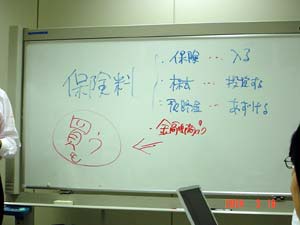 保険料
・保険 … 入る
・株式 … 投資する
・預貯金 … あずける
・金融商品
買う